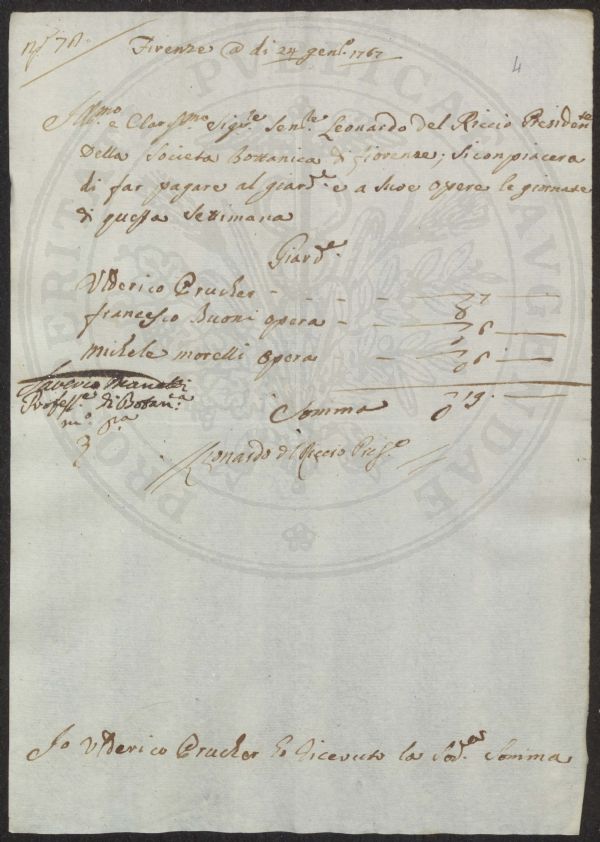 N° 78
Firenze a di 24 genl.° 1767
4
Ill.mo e Clar.smo Sig.re Sen.le Leonardo del Riccio Presiden.te
Della Societa Bottanica di fiorenze; si conpiacera
di far pagare al giard.re e a sue opere le giornate
di questa settimana
Giard.re
Ulderico Prucher - - - - 7
francesco Buoni opera - 6
Michele morelli opera 6
Saverio Manetti
Profess.re di Botan.ca
m.o p.a
Somma 19
Leonardo del Riccio Pres.e
PRO VERITATE PUBLICA AUGENDAE
Io Ulderico Prucher ho ricevuto la Sod.a Somma